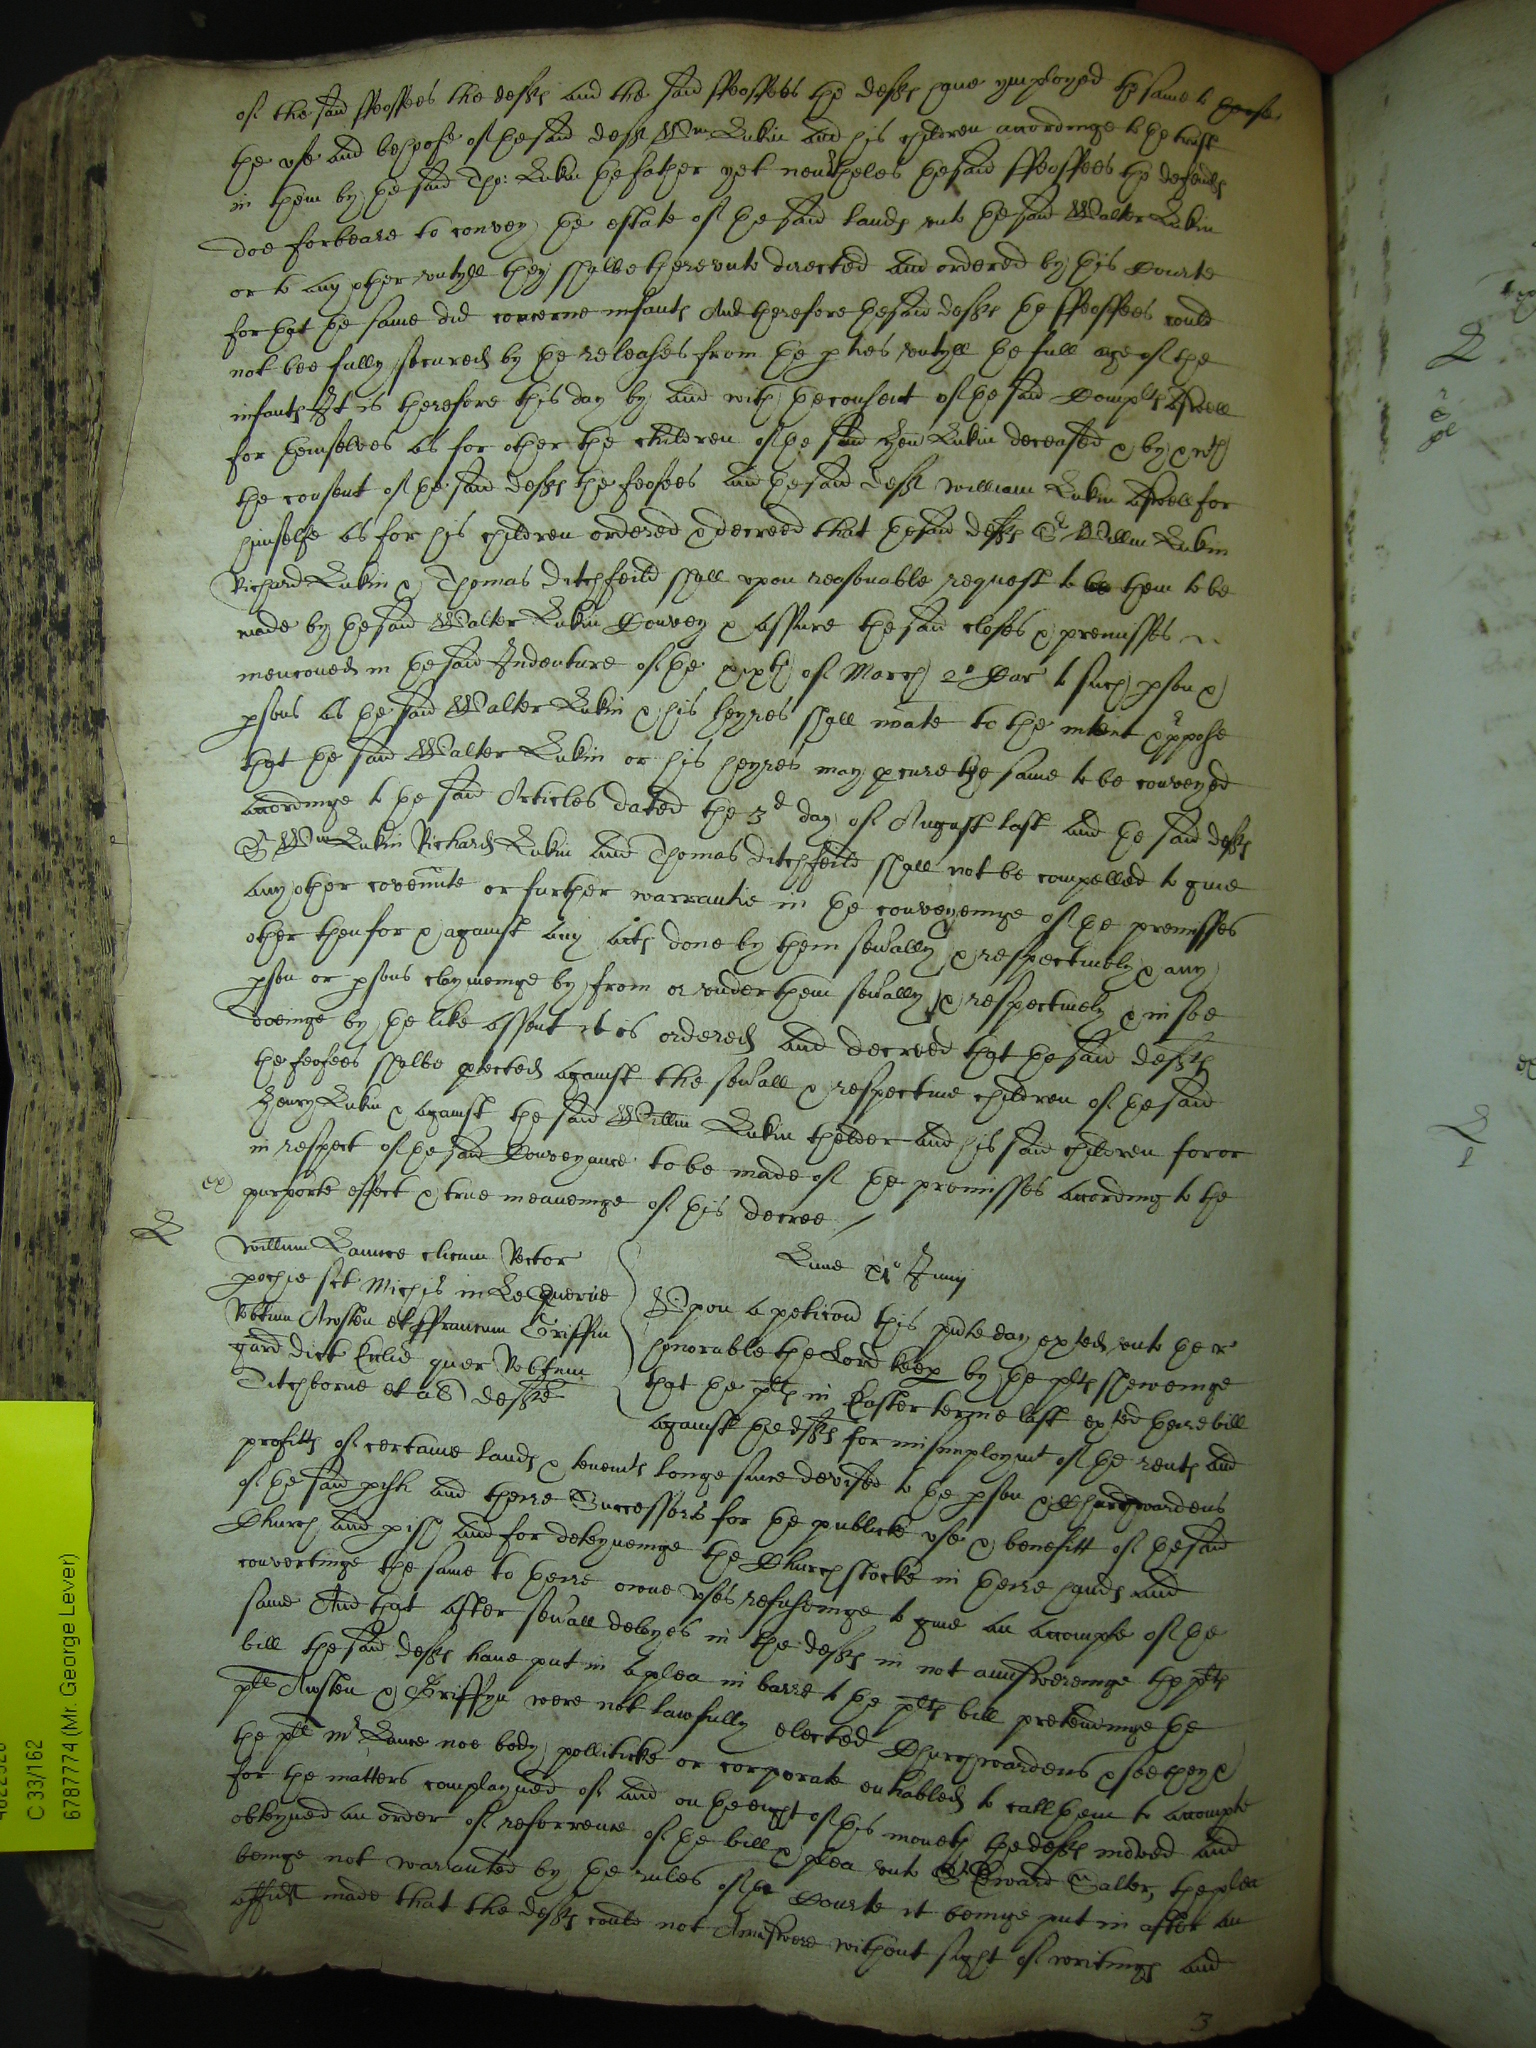 of the said ffeoffees the defts and the said ffeoffees the defts haue ymployed the same to
the vse and behoofe of the said deft Wm Lukin and his children accordinge to the trust
in them by the said Tho: Lukin the father yet neu'theles the said ffeoffees the defendts
doe forbeare to convey the estate of the said lands vnto the said Walter Lukin
or to any other vntyll they shalbe therevnto directed and ordered by this Courte
for that the same did concerne infants And therefore the said defts the ffeoffees could
not bee fully secured by the releases from the pties vntyll the full age of the
infants It is therefore this day by and with the consent of the said Complts aswell
for themselves as for other the children of the said Hen: Lukin deceased & by & wth
the consent of the said defts the feofees and the said deft William Lukin aswell for
himselfe as for his children ordered & decreed that the said defts Sr Willm Lukin
Richard Lukin & Thomas Ditchfeild shall vpon reasonable request to be them to be
made by the said Walter Lukin Convey & assure the said closes & premisses
menconed in the said Indenture of the xxth of March 2o Car to such pson &
psons as the said Walter Lukin & his heyres shall noiate to the intent & ppose
that the said Walter Lukin or his heyres may pcure the same to be conveyed
accordinge to the said Articles dated the 3d day of August last and the said defts
Sr Wm Lukin Richard Lukin and Thomas Ditchfeild shall not be compelled to giue
any other covennte or further warrantie in the conveyeinge of the premisses
other then for & against any acts done by them seu'ally & respectiuely & any
pson or psons claymeinge by from or vnder them seu'ally & respectiuely & in soe
doeinge by the like assent it is ordered and decreed that the said defts
the feofees shalbe ptected against the seu'all & respectiue children of the said
Henry Lukin & against the said Willm Lukin thelder and his said children for or
in respect of the said Conveyance to be made of the premisses according to the
ex) purporte effect & true meaneinge of this decree /
L
Willum Launce clicum Rector
pochie sct Michis in Le Querne
Robtum Austen et ffrancum Griffin
gard dict Ecclie quer Robtum
Titchborne et al defts
Lune xio Junij
Vpon a peticon this pnte day exhted vnto the r
honorable the Lord keep by the plts sheweinge
that the plts in Easter terme last exhted theire bill
against the defts for misimploymt of the rents and
profitts of certaine lands & tenemts longe since devised to the pson & Churchwardens
of the said pish and theire Successors for the publicke vse & benefitt of the said
Church and pish and for deteyneinge the Church stocke in theire hands and
convertinge the same to theire owne vses refuseinge to giue an accompte of the
same And that after seu'all delayes in the defts in not aunswereinge the plts
bill the said defts haue put in a plea in barre to the plts bill pretendinge the
plts Austen & Griffyn were not lawfully elected Churchwardens & soe they &
the plt Mr Launce noe body polliticke or corporate enhabled to call them to accompte
for the matters complayned of and on the eight of this moneth the defts moved and
obteyned an order of referrence of the bill & plea vnto Sr Edward Salter, the plea
beinge not warranted by the rules of the Courte it beinge put in after an
affidt made that the defts could not Aunswere without sight of writings and
3
C 33/162
6787774 (Mr. George Lever)